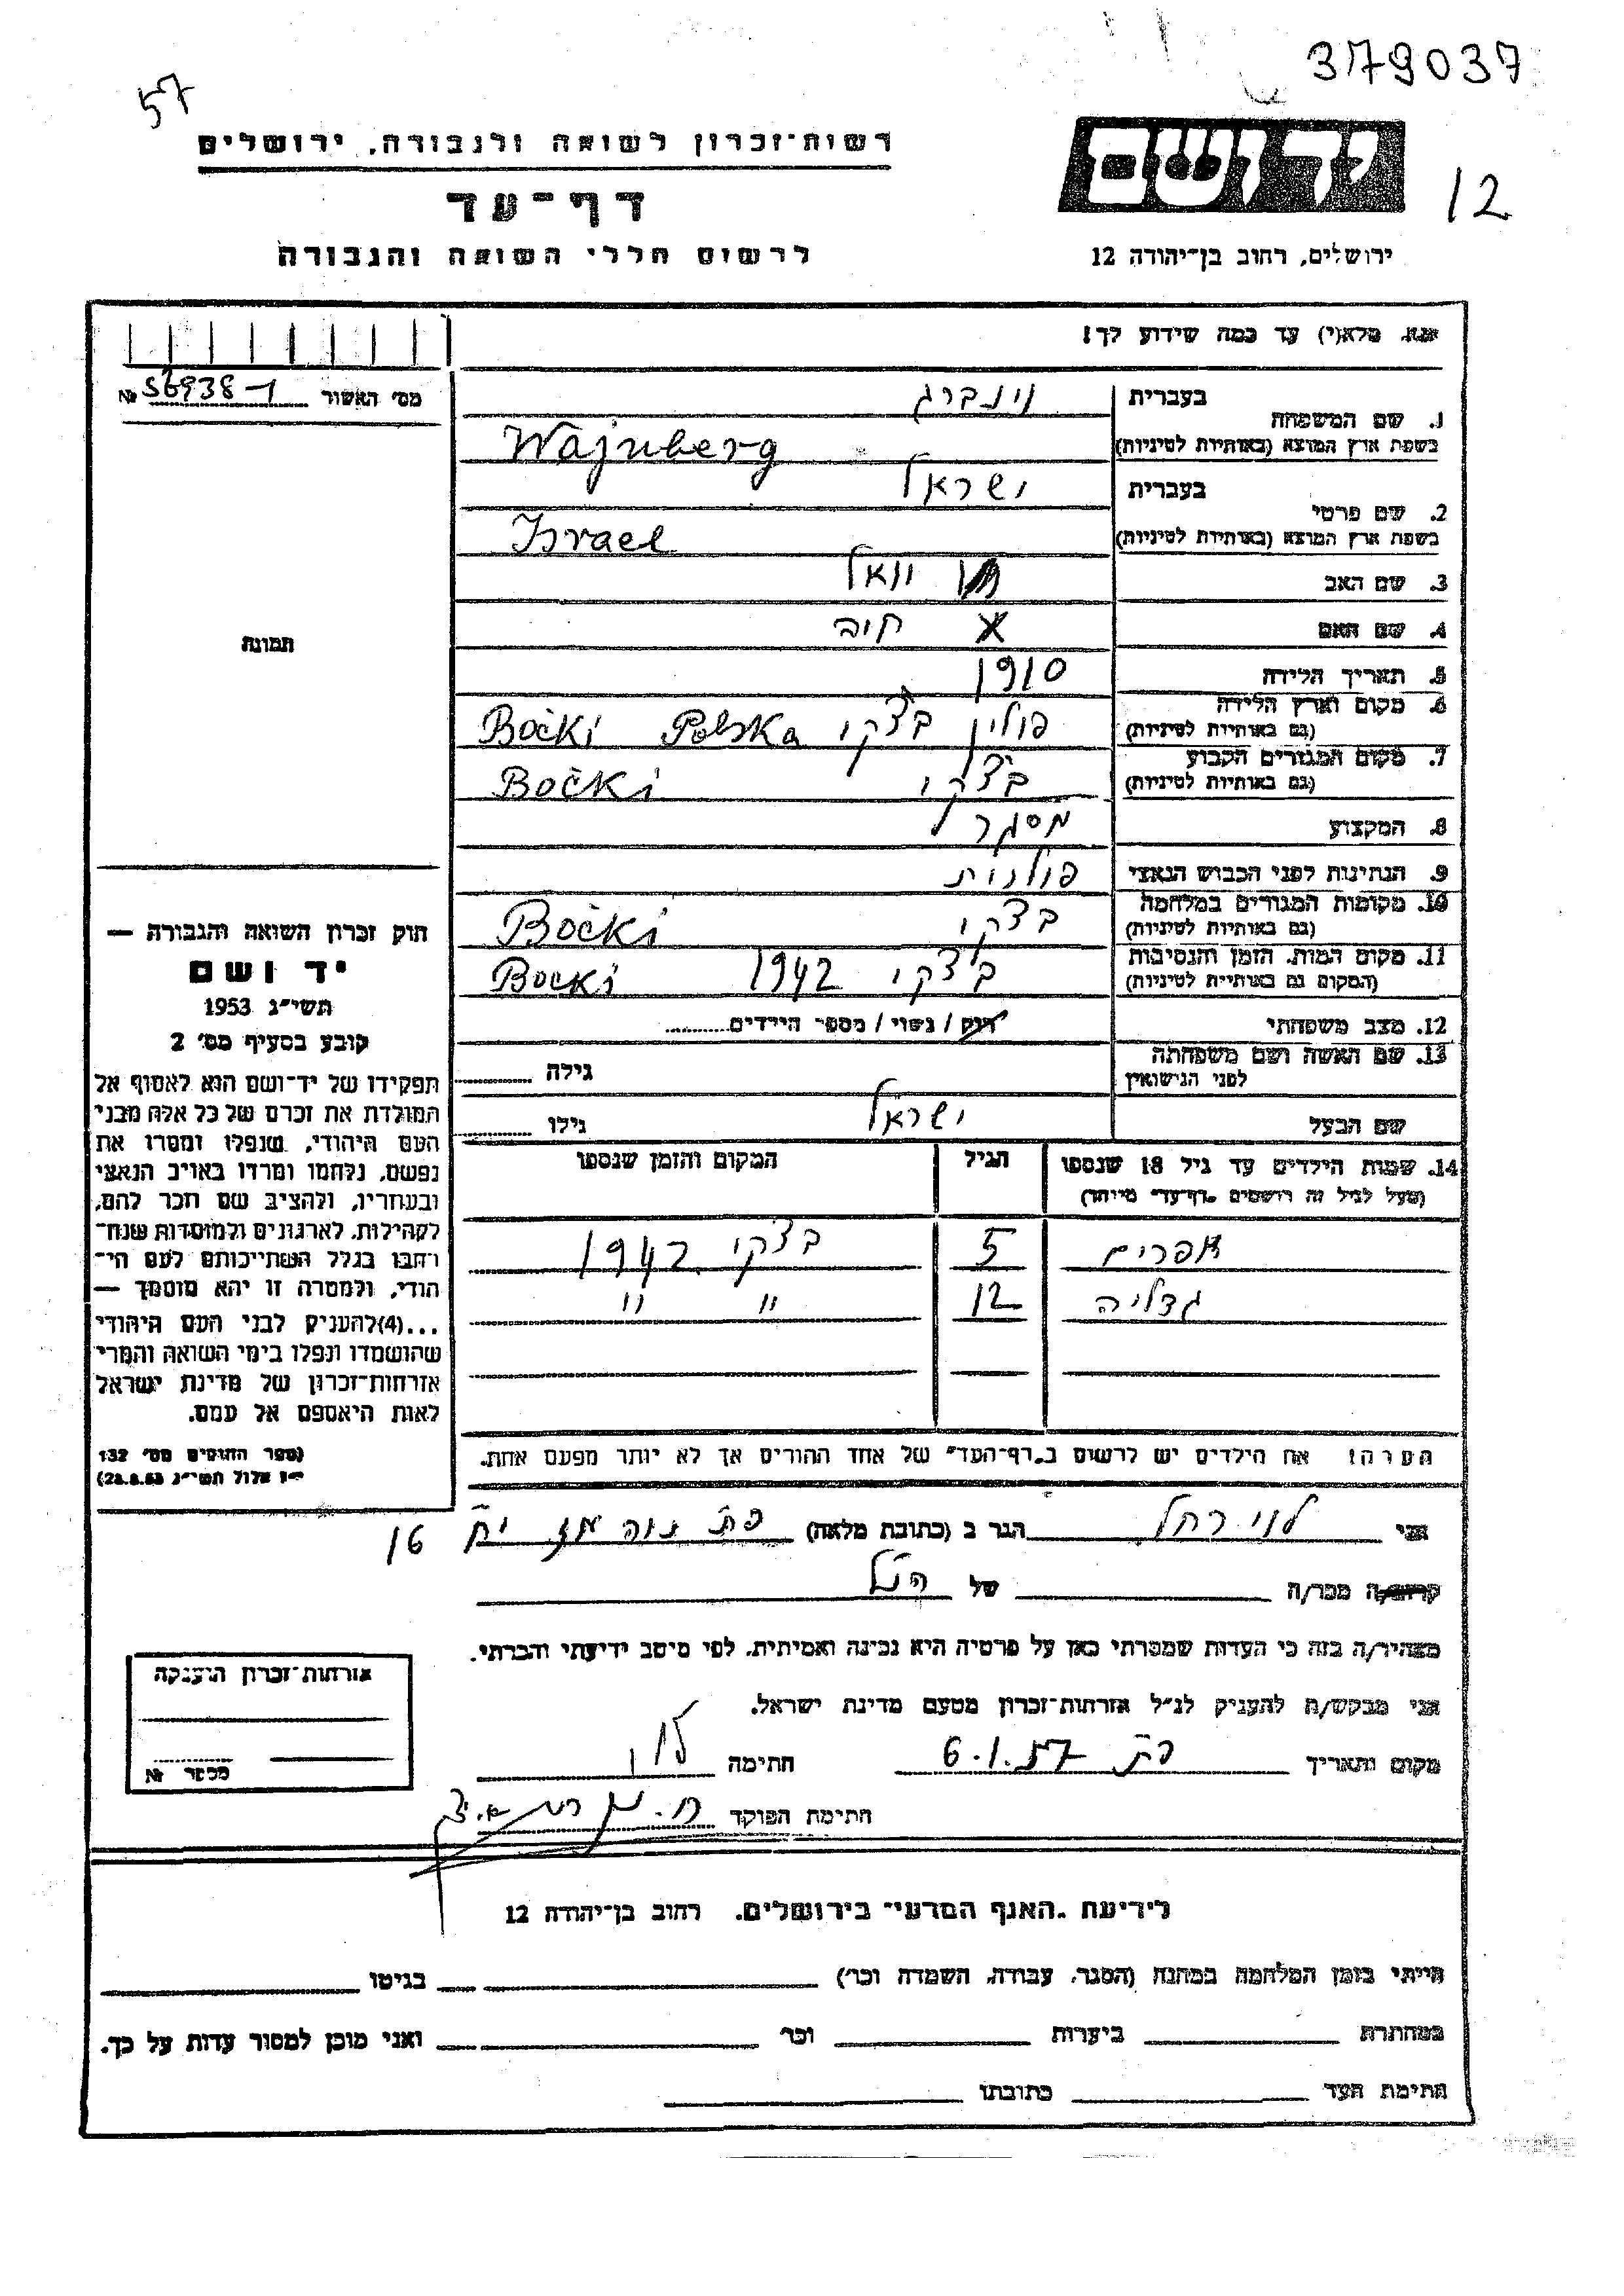 379037
57
יד ושם
12
רשות־זכרון לשואה ולגבורה, ירושלים
דף־עד
לרשום חללי השואה והגבורה
ירושלים, רחוב בן־יהודה 12
נא מלא(י) עד כמה שידוע לך!
מס׳ האשור № 56938-1
1. שם המשפחה בעברית וינברג
בשפת ארץ המוצא (באותיות לטיניות) Wajnberg
2. שם פרטי בעברית ישראל
בשפת ארץ המוצא (באותיות לטיניות) Israel
3. שם האב יואל
4. שם האם חיה
5. תאריך הלידה 1910
6. מקום וארץ הלידה (גם באותיות לטיניות) פולין בצקי Polska Boćki
7. מקום המגורים הקבוע (גם באותיות לטיניות) בצקי Boćki
8. המקצוע מסגר
9. הנתינות לפני הכבוש הנאצי פולנית
10. מקומות המגורים במלחמה (גם באותיות לטיניות) בצקי Boćki
11. מקום המות, הזמן והנסיבות (המקום גם באותיות לטיניות) בצקי 1942 Bocki
12. מצב משפחתי רווק / נשוי / מספר הילדים
13. שם האשה ושם משפחתה לפני הנישואין גילה
שם הבעל ישראל גילו
14. שמות הילדים עד גיל 18 שנספו הגיל המקום והזמן שנספו
(מעל לגיל זה רושמים „דף־עד״ מיוחד)
אפרים 5 בצקי 1942
גדליה 12 " "
הערה: את הילדים יש לרשום ב„דף־העד״ של אחד ההורים אך לא יותר מפעם אחת.
תמונה
חוק זכרון השואה והגבורה —
יד ושם
תשי״ג 1953
קובע בסעיף מס׳ 2
תפקידו של יד־ושם הוא לאסוף אל
המולדת את זכרם של כל אלה מבני
העם היהודי, שנפלו ומסרו את
נפשם, נלחמו ומרדו באויב הנאצי
ובעוזריו, ולהציב שם וזכר להם,
לקהילות, לארגונים ולמוסדות שנח־
רבו בגלל השתייכותם לעם הי־
הודי, ולמטרה זו יהא מוסמך —
...(4) להעניק לבני העם היהודי
שהושמדו ונפלו בימי השואה והמרי
אזרחות־זכרון של מדינת ישראל
לאות היאספם אל עמם.
(ספר החוקים מס׳ 132
י״ז אלול תשי״ג 28.8.53)
אני לוי רחל הגר ב (כתובת מלאה) פת נוה עוז 16
קרוב/ה מכר/ה של הנ״ל
מצהיר/ה בזה כי העדות שמסרתי כאן על פרטיה היא נכונה ואמיתית, לפי מיטב ידיעתי והכרתי.
אני מבקש/ת להעניק לנ״ל אזרחות־זכרון מטעם מדינת ישראל.
מקום ותאריך פת 6.1.57 חתימה לוי
חתימת הפוקד
אזרחות־זכרון הוענקה
מספר №
לידיעת „האגף המדעי״ בירושלים, רחוב בן־יהודה 12
הייתי בזמן המלחמה במחנה (הסגר, עבודה, השמדה וכו׳) בגיטו
במחתרת ביערות וכו׳ ואני מוכן למסור עדות על כך.
חתימת העד כתובתו